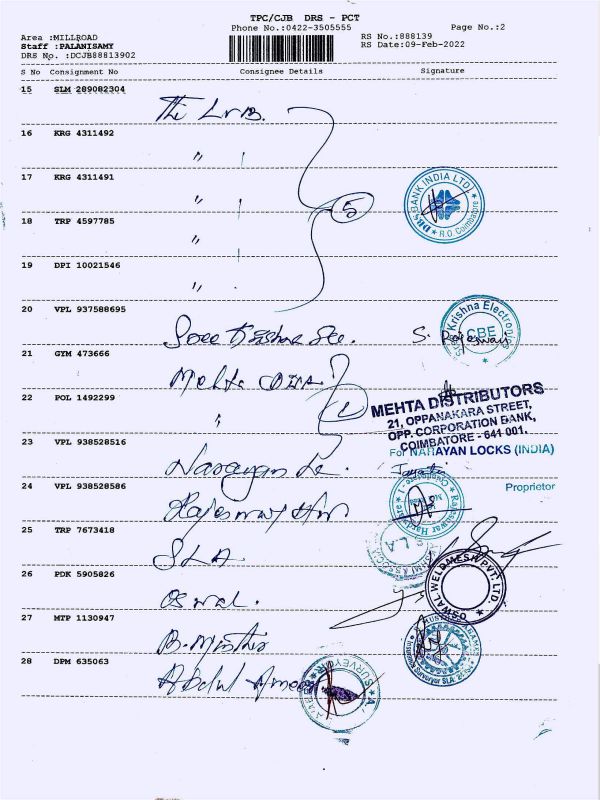 TPC/CJB DRS - PCT
Phone No.:0422-3505555
Page No.:2
Area :MILLROAD
RS No.:888139
Staff :PALANISAMY
RS Date:09-Feb-2022
DRS No. :DCJB88813902
S No Consignment No Consignee Details Signature
15 SLM 289082304
The LVB.
16 KRG 4311492
"
17 KRG 4311491
"
5
DBS BANK INDIA LTD
R.O. Coimbatore
18 TRP 4597785
"
19 DPI 10021546
"
20 VPL 937588695
Sree Krishna Ele. S. Rajeswari
Sree Krishna Electronics
CBE
21 GYM 473666
Mehta Dis
22 POL 1492299
"
MEHTA DISTRIBUTORS
21, OPPANAKARA STREET,
OPP. CORPORATION BANK,
COIMBATORE - 641 001.
23 VPL 938528516
For NARAYAN LOCKS (INDIA)
Narayan Lo.
24 VPL 938528586
Proprietor
Rajeswar Har
Rajeswar Hardware
25 TRP 7673418
SLA
SLA
26 PDK 5905826
Oswal.
OSWAL WELDMESH PVT. LTD.
27 MTP 1130947
B. Misthri
28 DPM 635063
Abdul Ameer
SURVEYOR